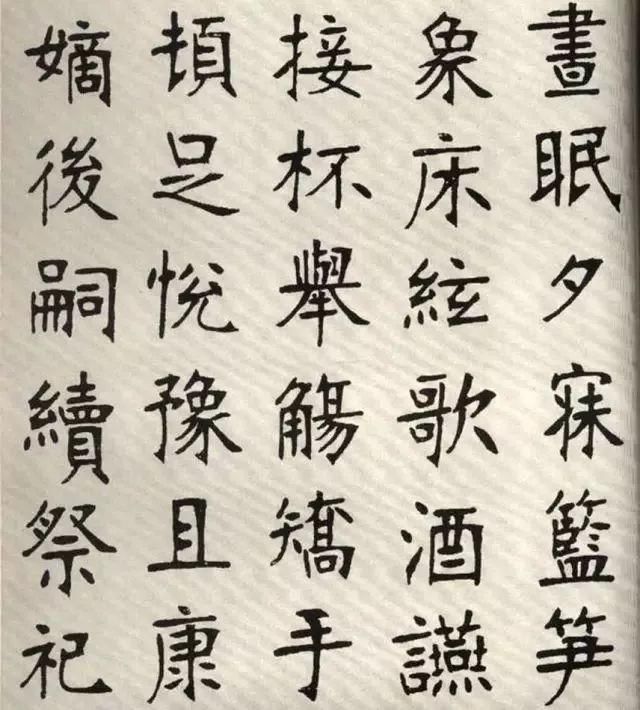 晝眠夕寐籃笋
象床絃歌酒讌
接杯舉觴矯手
頓足悅豫且康
嫡後嗣續祭祀